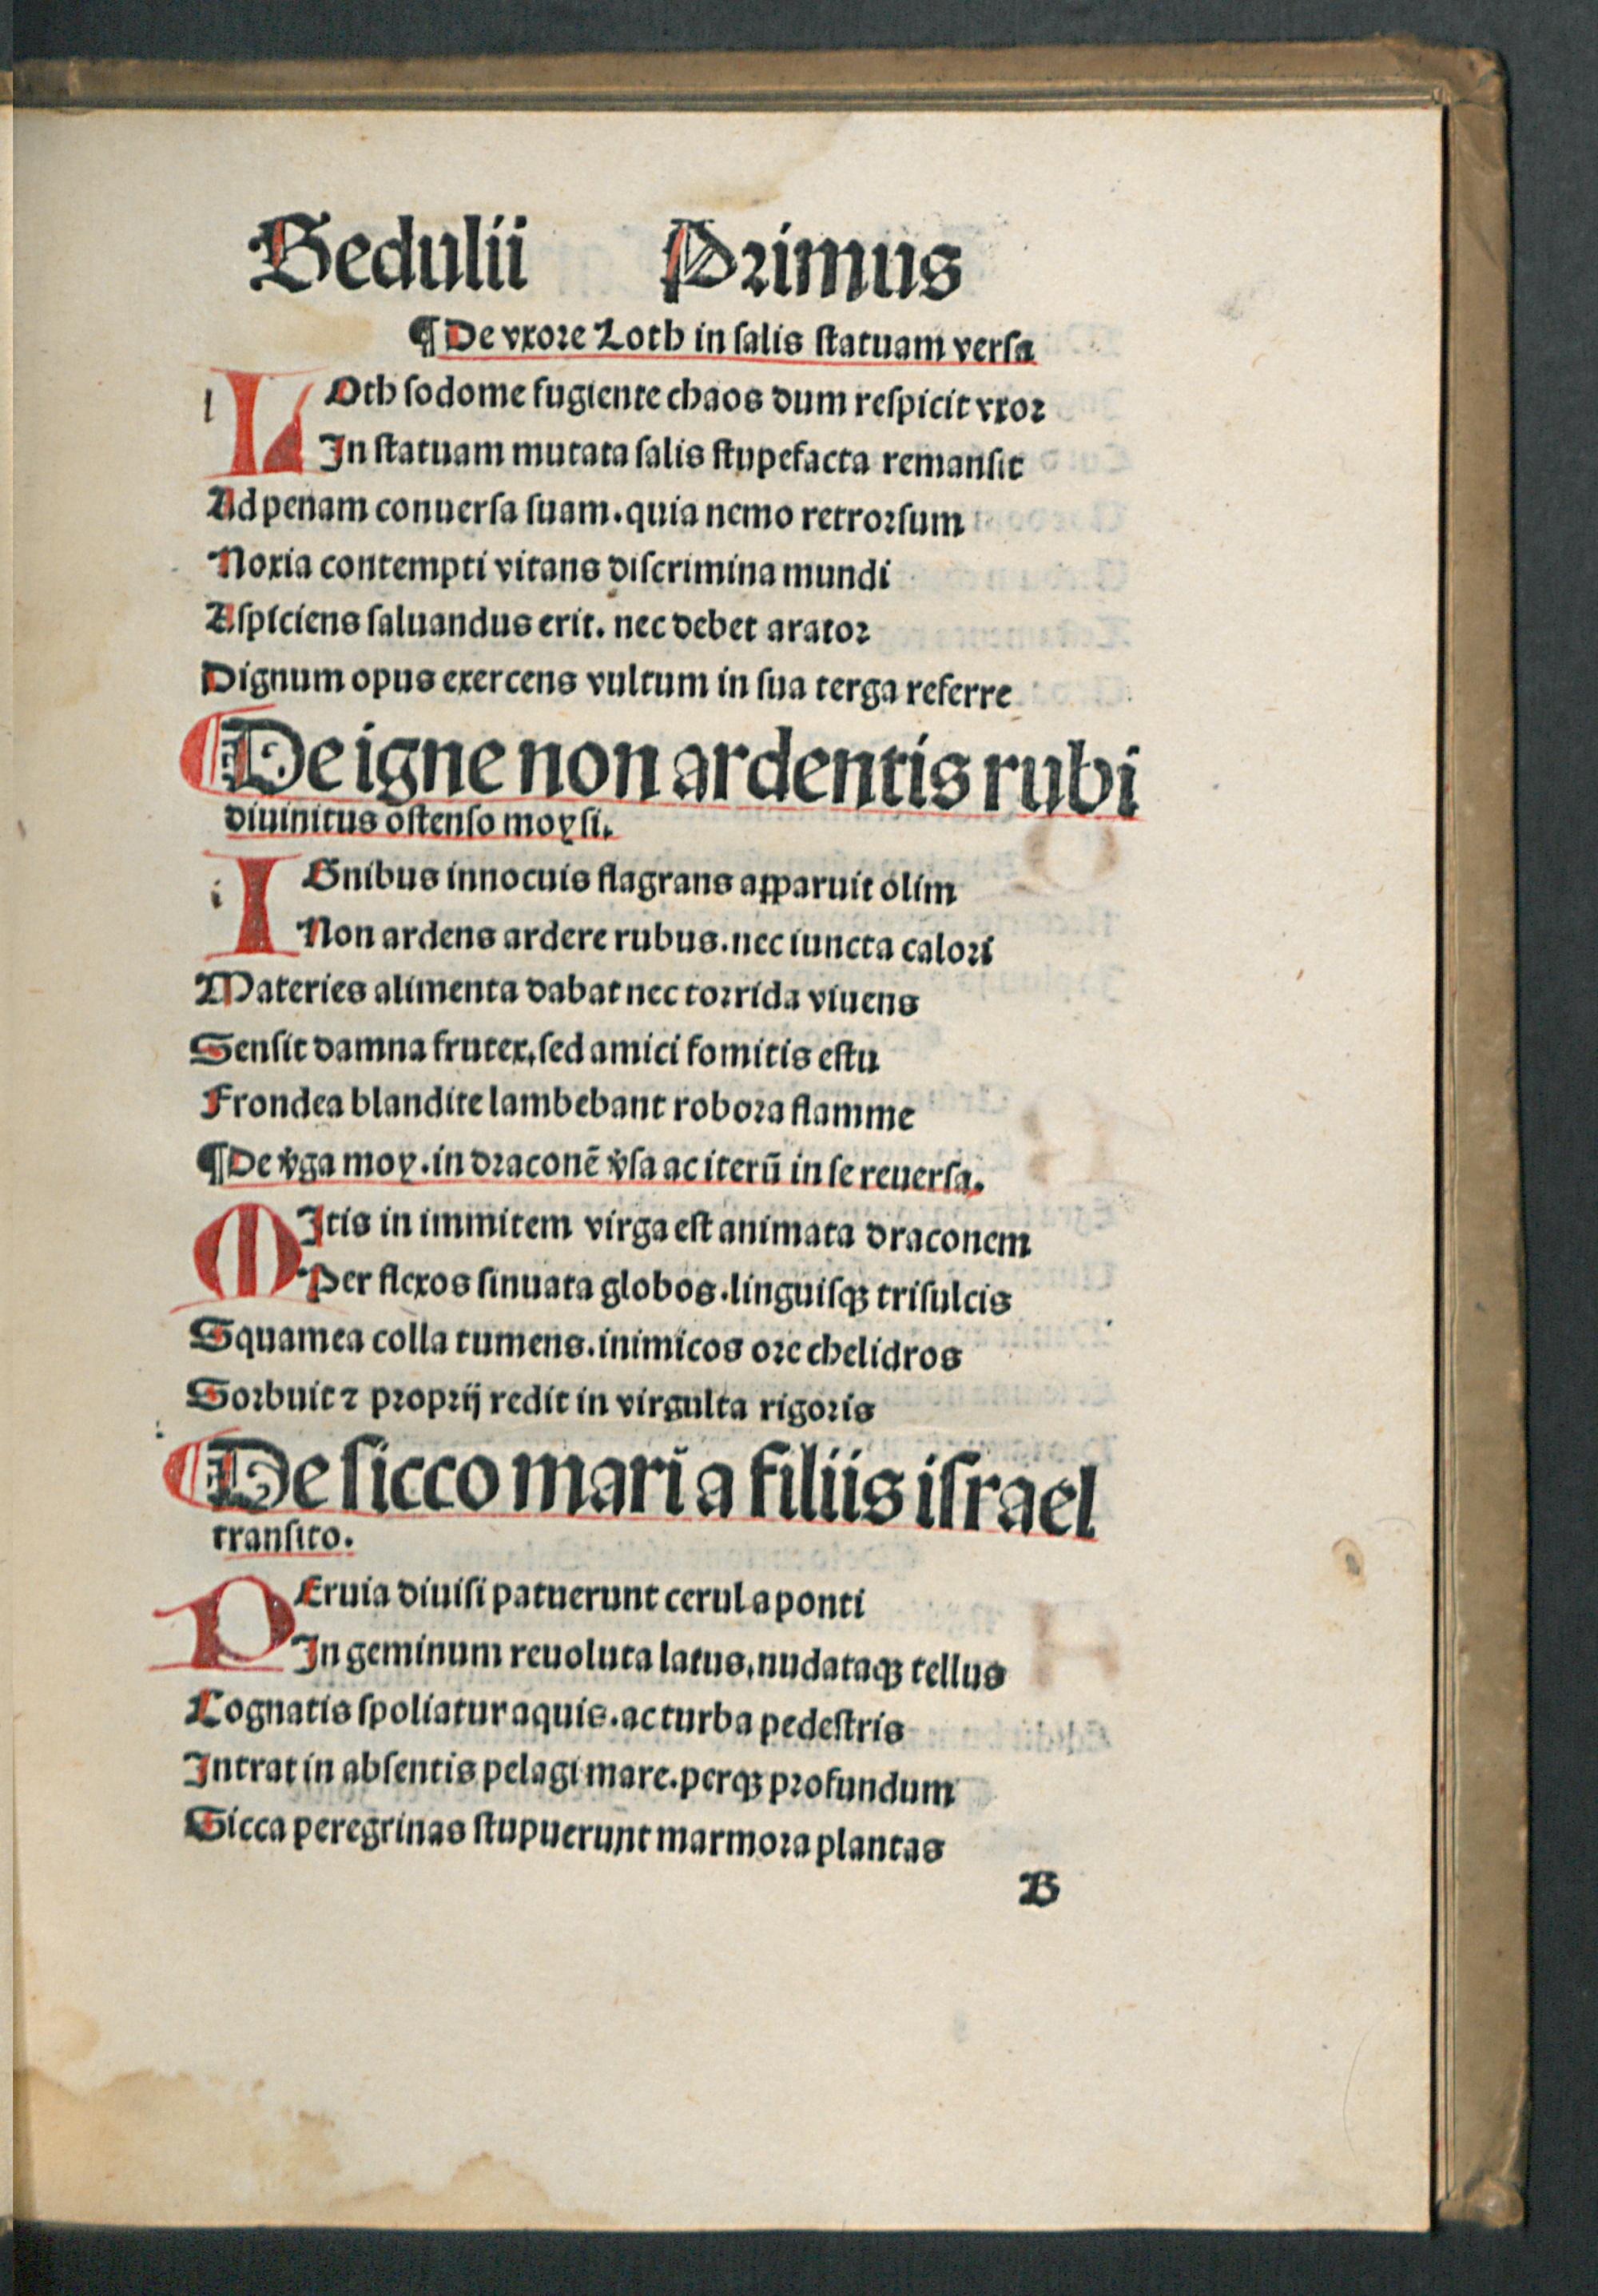 Sedulii Primus
¶De vxore Loth in ſalis ſtatuam verſa
LOth ſodome fugiente chaos dum reſpicit vxor
In ſtatuam mutata ſalis ſtupefacta remanſit
Ad penam conuerſa ſuam. quia nemo retrorſum
Noxia contempti vitans diſcrimina mundi
Aſpiciens ſaluandus erit. nec debet arator
Dignum opus exercens vultum in ſua terga referre
¶De igne non ardentis rubi
diuinitus oſtenſo moyſi.
IGnibus innocuis flagrans apparuit olim
Non ardens ardere rubus. nec iuncta calori
Materies alimenta dabat nec torrida viuens
Senſit damna frutex, ſed amici fomitis eſtu
Frondea blandite lambebant robora flamme
¶De v̔ga moy. in draconē v̔ſa ac iterū in ſe reuerſa.
MItis in immitem virga eſt animata draconem
Per flexos ſinuata globos. linguiſqꝫ triſulcis
Squamea colla tumens. inimicos ore chelidros
Sorbuit ⁊ proprij redit in virgulta rigoris
¶De ſicco mari a filiis iſrael
tranſito.
PEruia diuiſi patuerunt cerula ponti
In geminum reuoluta latus, nudataqꝫ tellus
Cognatis ſpoliatur aquis. ac turba pedeſtris
Intrat in abſentis pelagi mare. perqꝫ profundum
Sicca peregrinas ſtupuerunt marmora plantas
B